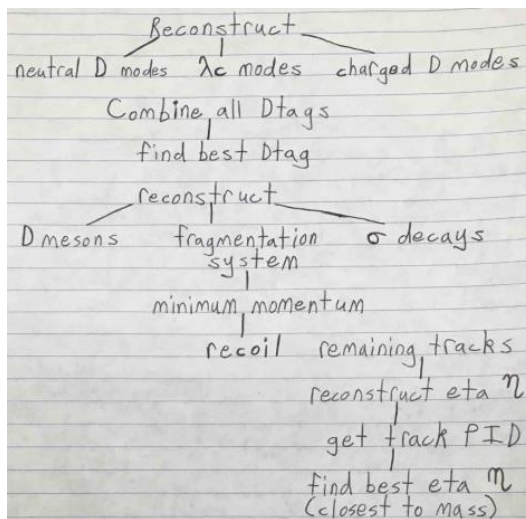 Reconstruct
neutral D modes λc modes charged D modes
Combine all Dtags
find best Dtag
reconstruct
D mesons fragmentation σ decays
system
minimum momentum
recoil remaining tracks
reconstruct eta η
get track PID
find best eta η
(closest to mass)